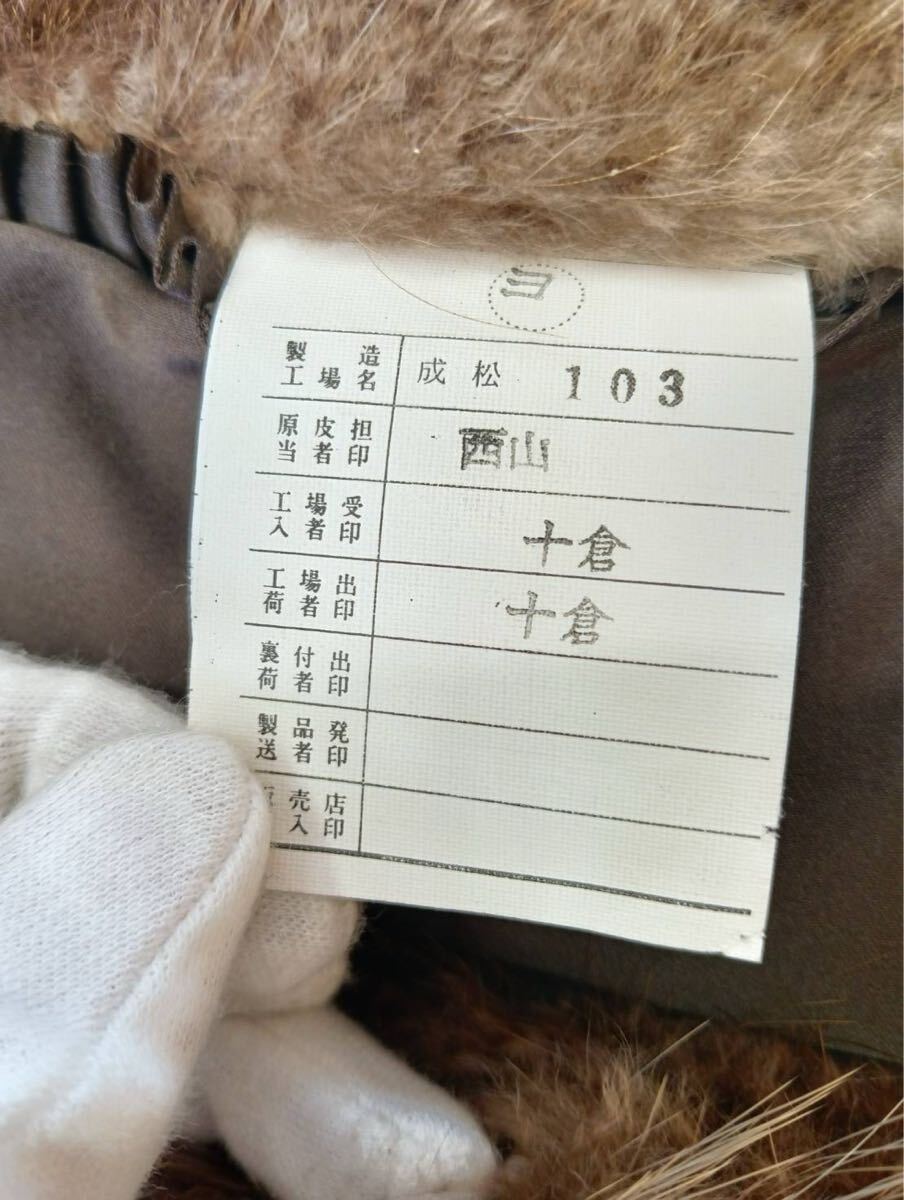 ヨ
製造
工場名
成松 103
原皮担
当者印
西山
工場受
入者印
十倉
工場出
荷者印
十倉
裏付出
荷者印
製品発
送者印
売店
入印